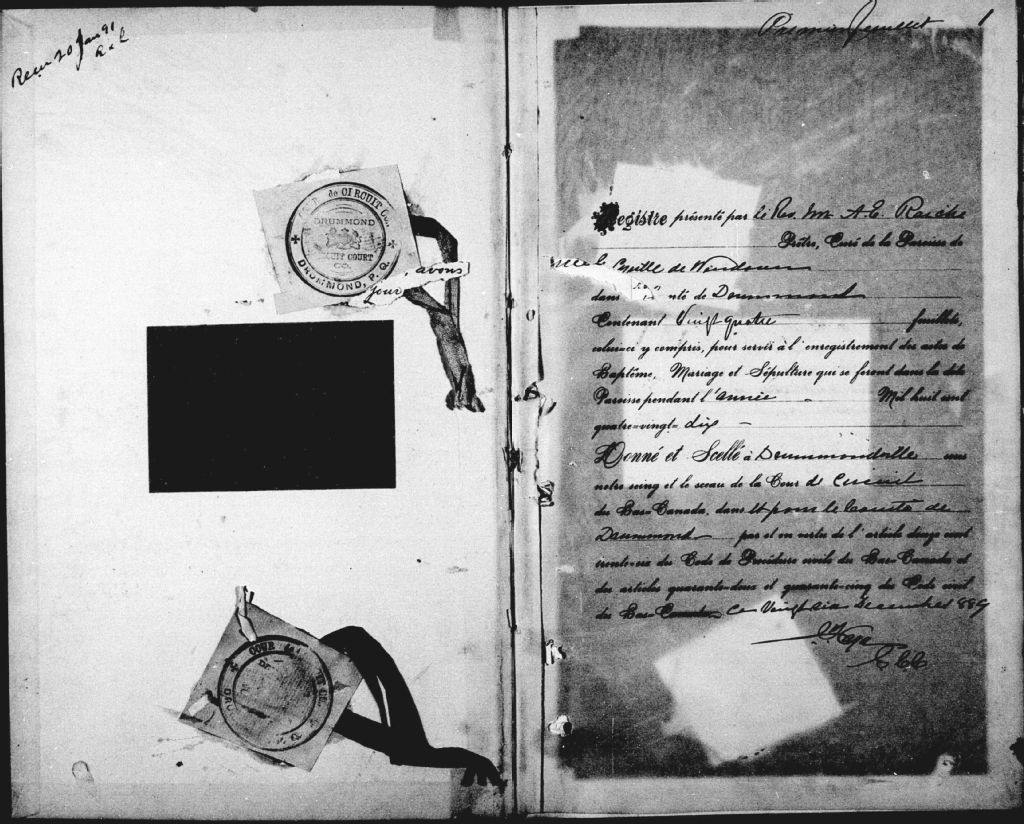 Recu 20 Jan 91
COUR de CIRCUIT Co.
DRUMMOND
CIRCUIT COURT
CO.
DRUMMOND, P. Q.
avons
jour
COUR de
Premier feuillet 1
Registre présenté par le Rev. M. A. E.
Prêtre, Curé de la Paroisse de
de
dans nté de Drummond
Contenant Vingt quatre feuillets,
celui-ci y compris, pour servir à l'enregistrement des actes de
Baptême, Mariage et Sépulture qui se feront dans la dite
Paroisse pendant l'année Mil huit cent
quatre-vingt-dix
Donné et Scellé à Drummondville sous
notre seing et le sceau de la Cour de Circuit
du Bas-Canada, dans et pour le Comté de
Drummond par et en vertu de l'article douze cent
trente-six du Code de Procédure civile du Bas-Canada et
des articles quarante-deux et quarante-cinq du Code civil
du Bas-Canada, ce Vingt six Decembre 1889
C C C